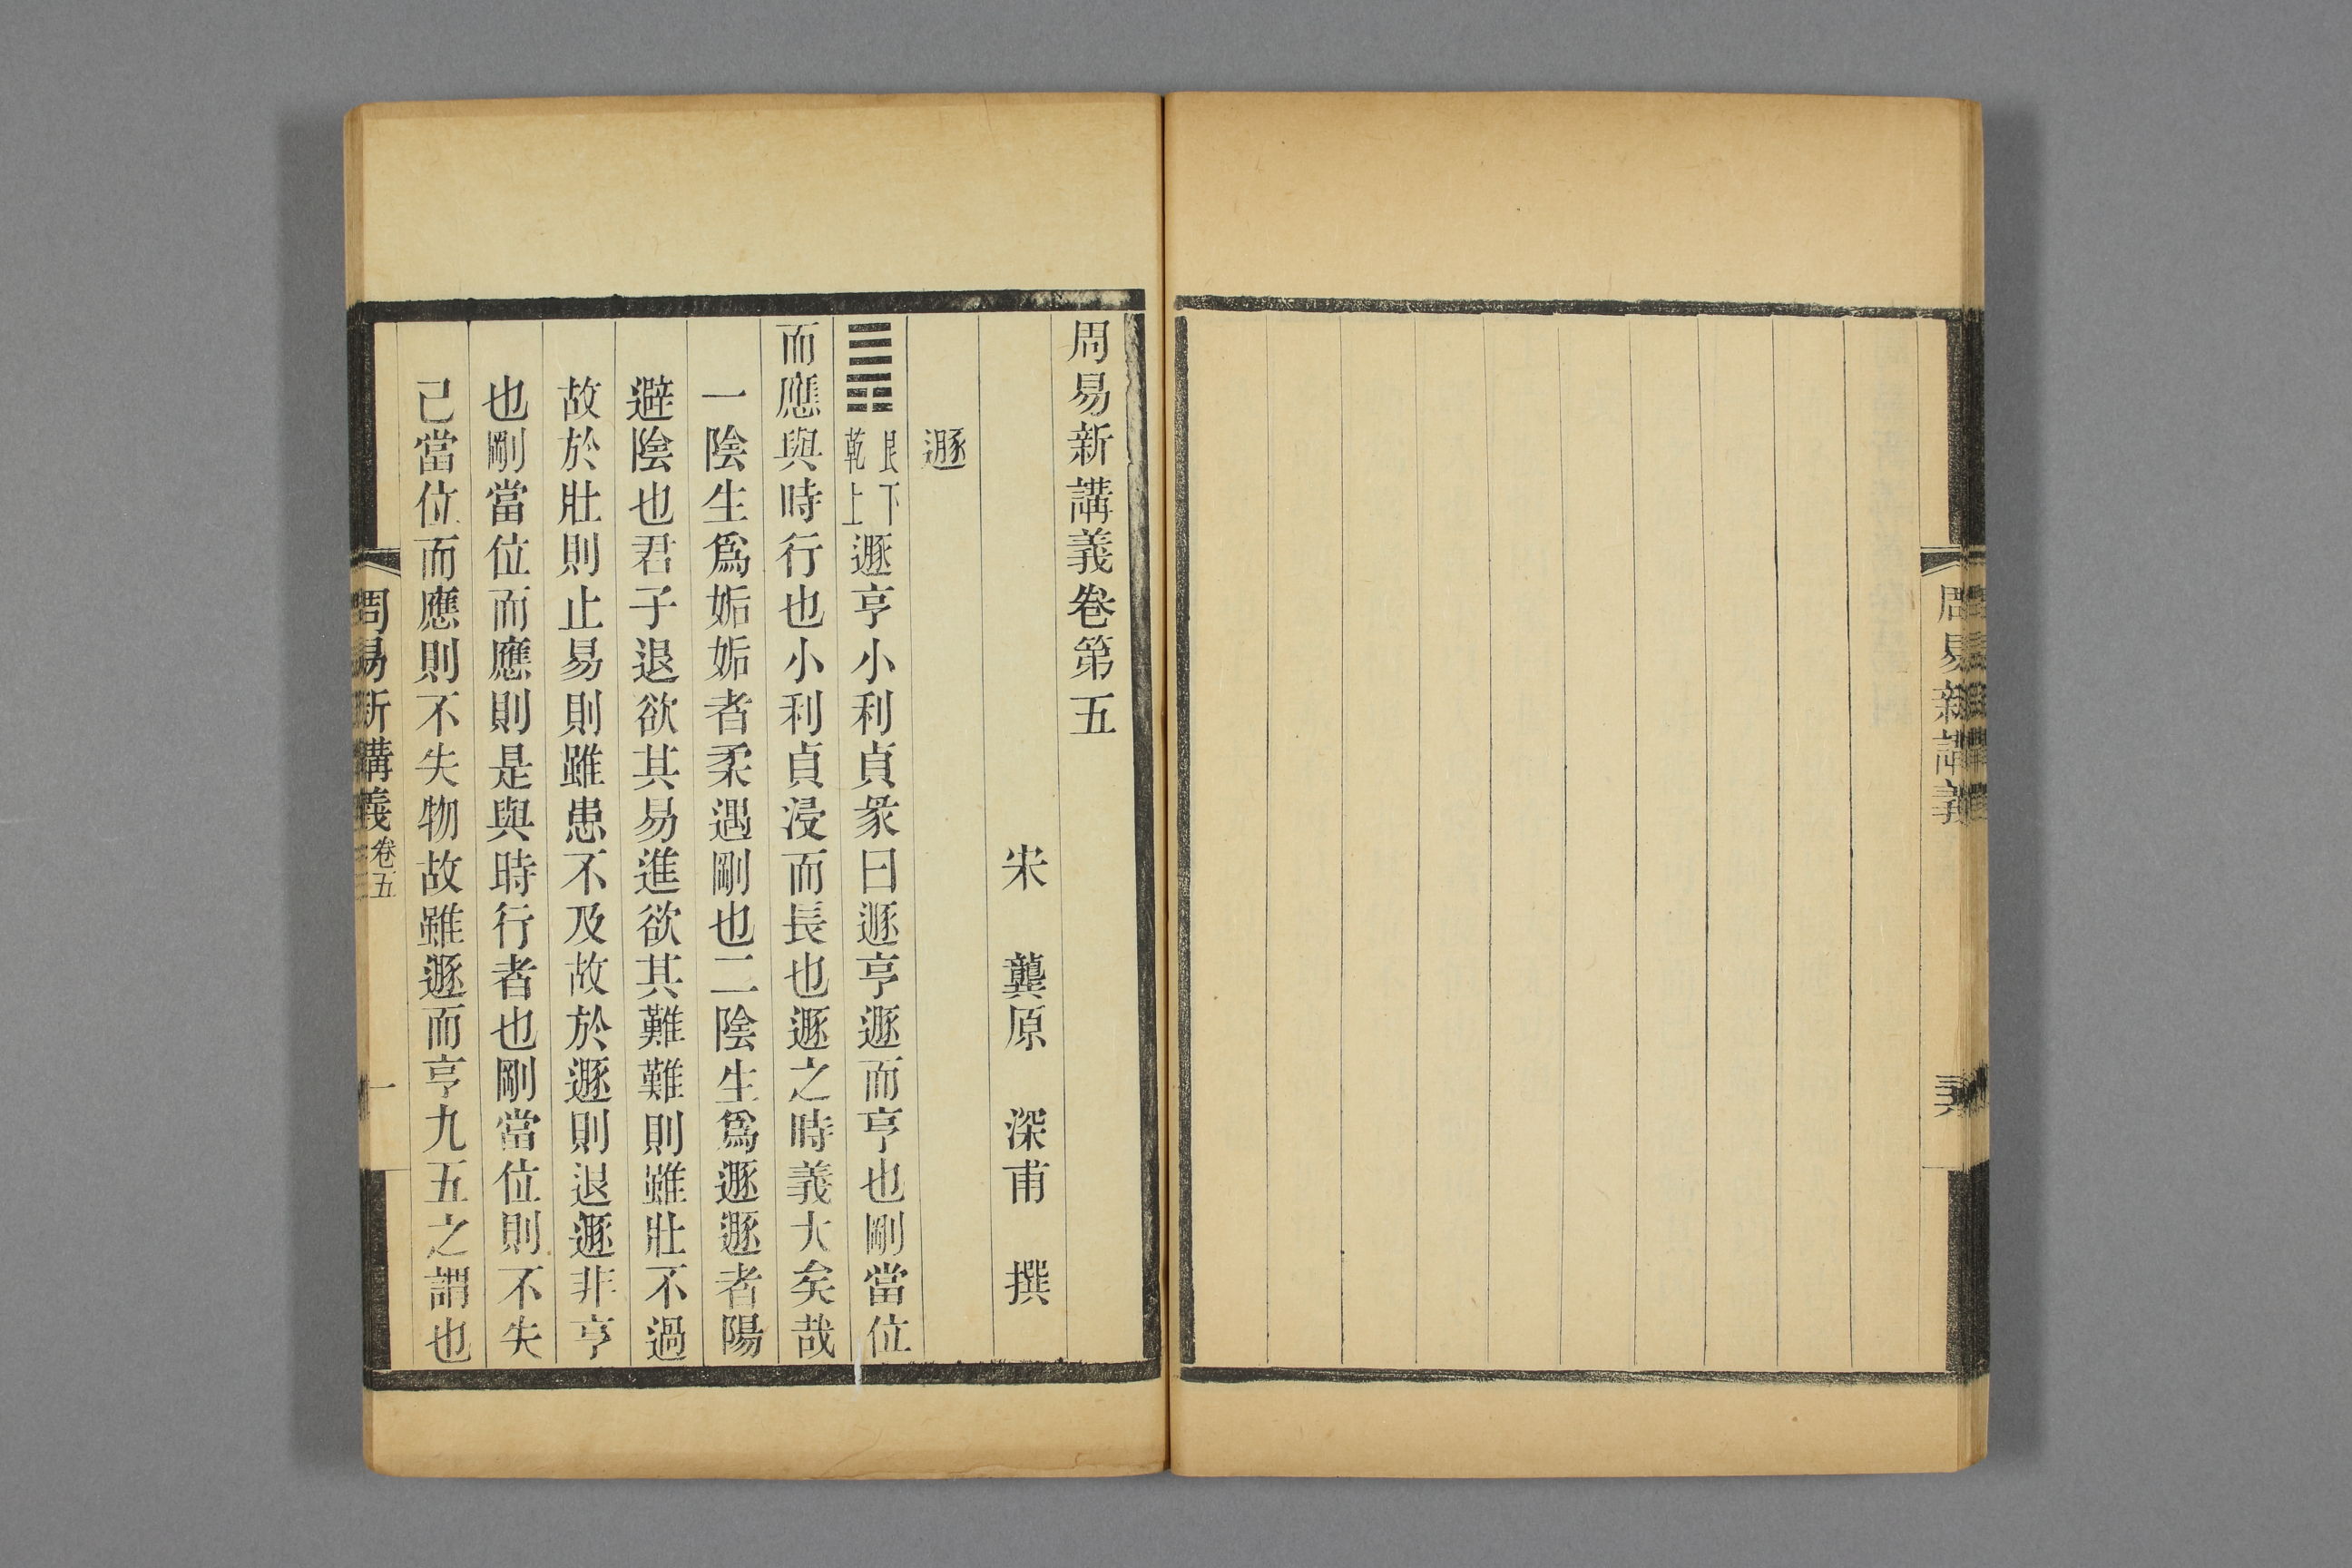 周易新講義
周易新講義卷第五
宋 龔原 深甫 撰
遯
䷠艮下乾上遯亨小利貞彖曰遯亨遯而亨也剛當位
而應與時行也小利貞浸而長也遯之時義大矣哉
一陰生爲姤姤者柔遇剛也二陰生爲遯遯者陽
避陰也君子退欲其易進欲其難難則雖壯不過
故於壯則止易則雖患不及故於遯則退遯非亨
也剛當位而應則是與時行者也剛當位則不失
己當位而應則不失物故雖遯而亨九五之謂也
周易新講義卷五 一